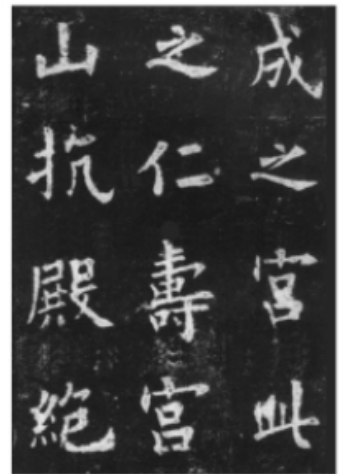 成之宮此
之仁壽宮
山抗殿絕